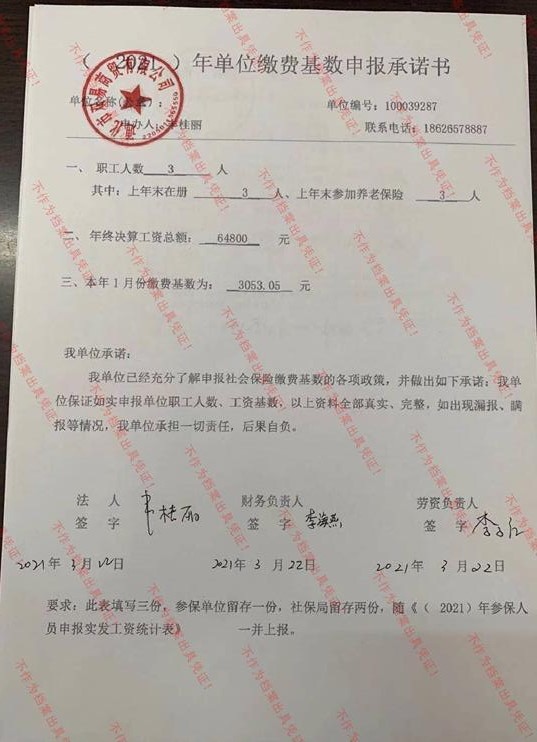 ( 2021 ) 年单位缴费基数申报承诺书
单位名称(公章): 单位编号: 100039287
申办人: 韦桂丽 联系电话: 18626578887
一、 职工人数 3 人
其中: 上年末在册 3 人、上年末参加养老保险 3 人
二、 年终决算工资总额: 64800 元
三、本年1月份缴费基数为: 3053.05 元
我单位承诺:
我单位已经充分了解申报社会保险缴费基数的各项政策, 并做出如下承诺: 我单
位保证如实申报单位职工人数、工资基数, 以上资料全部真实、完整, 如出现漏报、瞒
报等情况, 我单位承担一切责任, 后果自负。
法 人 财务负责人 劳资负责人
签 字 韦桂丽 签 字 李海燕 签 字
2021年 3月22日 2021年 3 月 22日 2021年 3 月22日
要求: 此表填写三份, 参保单位留存一份, 社保局留存两份, 随《( 2021) 年参保人
员申报实发工资统计表》 一并上报。
不作为档案出具凭证!